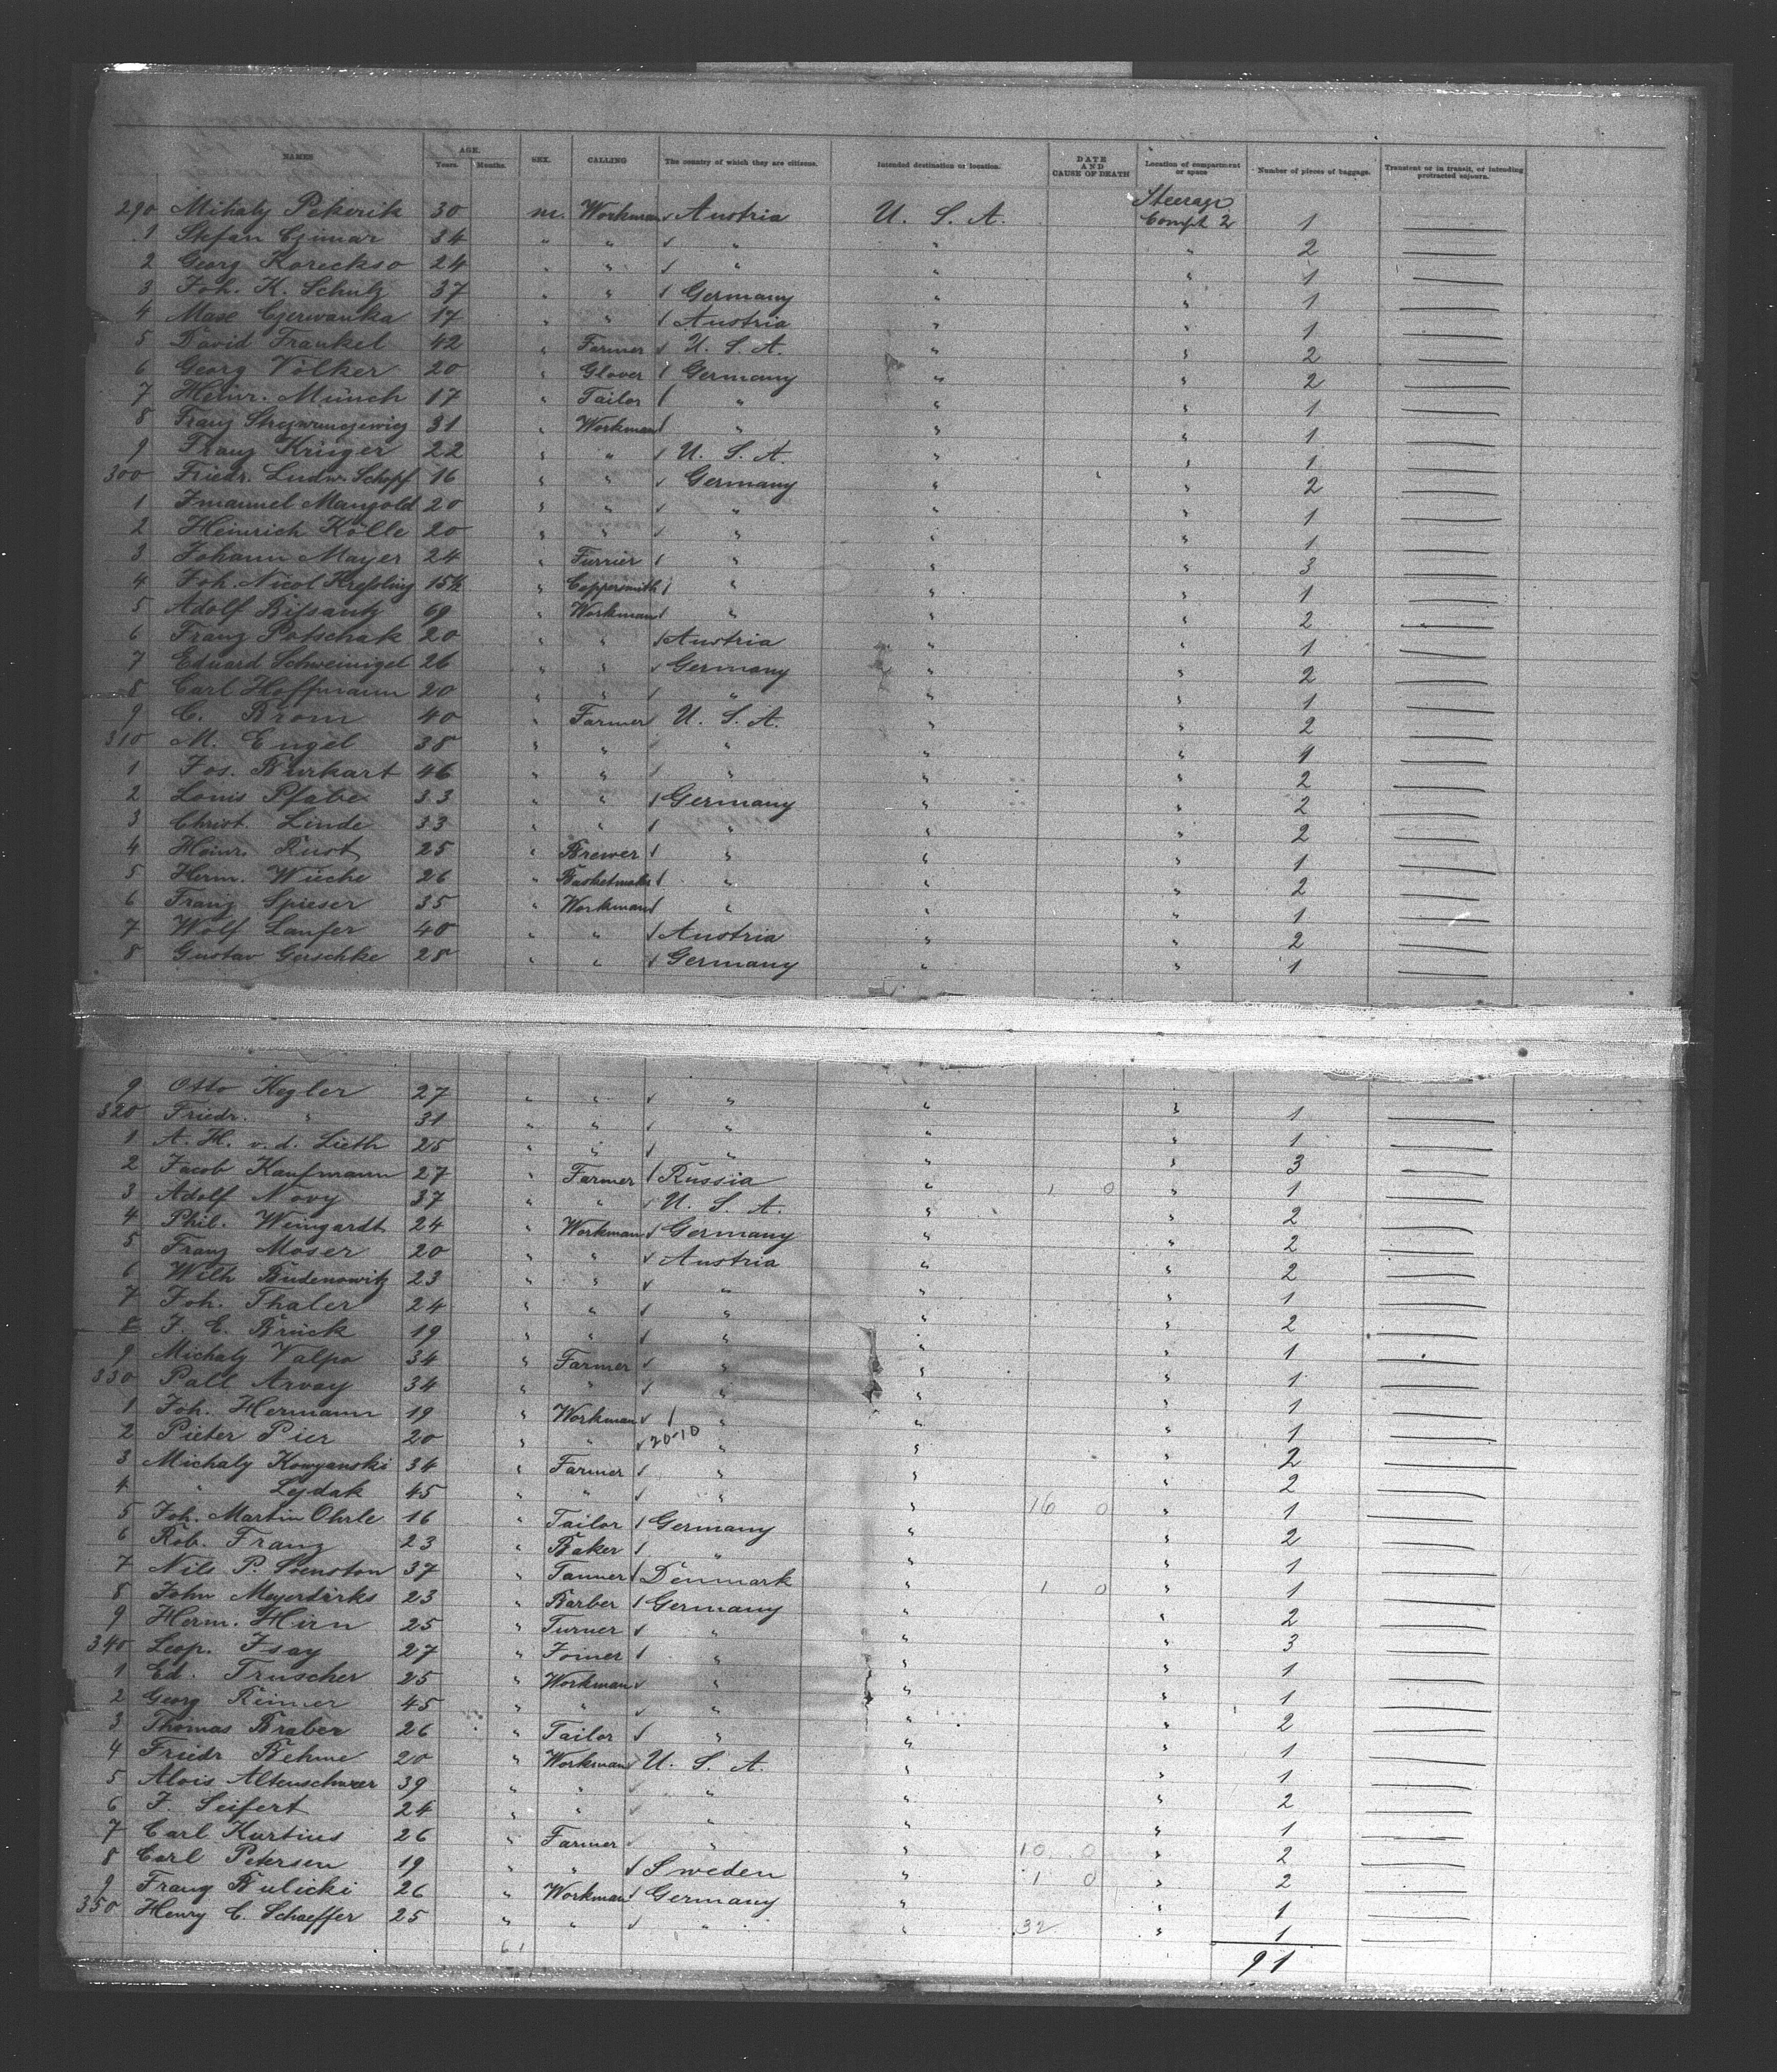 NAMES AGE. Years. Months. SEX. CALLING The country of which they are citizens. Intended destination or location. DATE AND CAUSE OF DEATH Location of compartment or space Number of pieces of baggage. Transient or in transit, or intending protracted sojourn.
290 Mihaly Pekerik 30 m. Workman Austria U. S. A. Steerage Compt 2 1
1 Stefan Czimar 34 " " " " " 2
2 Georg Koreckso 24 " " " " " 1
3 Joh. K. Schulz 37 " " Germany " " 1
4 Max Czerwanka 17 " " Austria " " 1
5 David Frankel 42 " Farmer U. S. A. " " 2
6 Georg Völker 20 " Glover Germany " " 2
7 Heinr. Münch 17 " Tailor " " " 1
8 Franz 31 " Workman " " " 1
9 Franz Krüger 22 " " U. S. A. " " 1
300 Friedr. Ludw. Schopf 16 " " Germany " " 2
1 Imanuel Mangold 20 " " " " " 1
2 Heinrich Kölle 20 " " " " " 1
3 Johann Mayer 24 " Furrier " " " 3
4 Joh. Nicol Kreßling 15½ " Coppersmith " " " 1
5 Adolf Bißantz 69 " Workman " " " 2
6 Franz Potschak 20 " " Austria " " 1
7 Eduard Schweinigel 26 " " Germany " " 2
8 Carl Hoffmann 20 " " " " " 1
9 C. Brom 40 " Farmer U. S. A. " " 2
310 M. Engel 38 " " " " " 1
1 Jos. Burkart 46 " " " " " 2
2 Louis Pfabe 33 " " Germany " " 2
3 Christ. Linde 33 " " " " " 2
4 Heinr. Rust 25 " Brewer " " " 1
5 Herm. Wieche 26 " Basketmaker " " " 2
6 Franz Spieser 35 " Workman " " " 1
7 Wolf Laufer 40 " " Austria " " 2
8 Gustav Gerschke 28 " " Germany " " 1
9 Otto Kegler 27 " " " " " 1
320 Friedr. " 31 " " " " " 1
1 A. H. v. d. Lieth 25 " " " " " 3
2 Jacob Kaufmann 27 " Farmer Russia " 1 0 " 1
3 Adolf Novy 37 " " U. S. A. " " 2
4 Phil. Weingardt 24 " Workman Germany " " 2
5 Franz Moser 20 " " Austria " " 2
6 Wilh Budenowitz 23 " " " " " 1
7 Joh. Thaler 24 " " " " " 2
8 J. E. Brück 19 " " " " " 1
9 Michaly Valpo 34 " Farmer " " " 1
330 Pall Arvay 34 " " " " " 1
1 Joh. Hermann 19 " Workman " " " 1
2 Pieter Pier 20 " " 20-10 " " " 2
3 Michaly Kowyanski 34 " Farmer " " " 2
4 " Lejdak 45 " " " " 16 0 " 1
5 Joh. Martin Ohrle 16 " Tailor Germany " " 2
6 Rob. Franz 23 " Baker " " " 1
7 Nils P. Svenston 37 " Tanner Denmark " 1 0 " 1
8 John Meyerdirks 23 " Barber Germany " " 2
9 Herm. Hirn 25 " Turner " " " 3
340 Leop. Isay 27 " Joiner " " " 1
1 Ed. Truscher 25 " Workman " " " 1
2 Georg Reimer 45 " " " " " 2
3 Thomas Braber 26 " Tailor " " " 1
4 Friedr Behme 20 " Workman U. S. A. " " 1
5 Alois Altenschweer 39 " " " " " 2
6 J. Seifert 24 " " " " " 1
7 Carl Kurtius 26 " Farmer " " 10 0 " 2
8 Carl Petersen 19 " " Sweden " 1 0 " 2
9 Franz Bulicki 26 " Workman Germany " " 1
350 Henry C. Schaeffer 25 " " " " 32 " 1
61 91